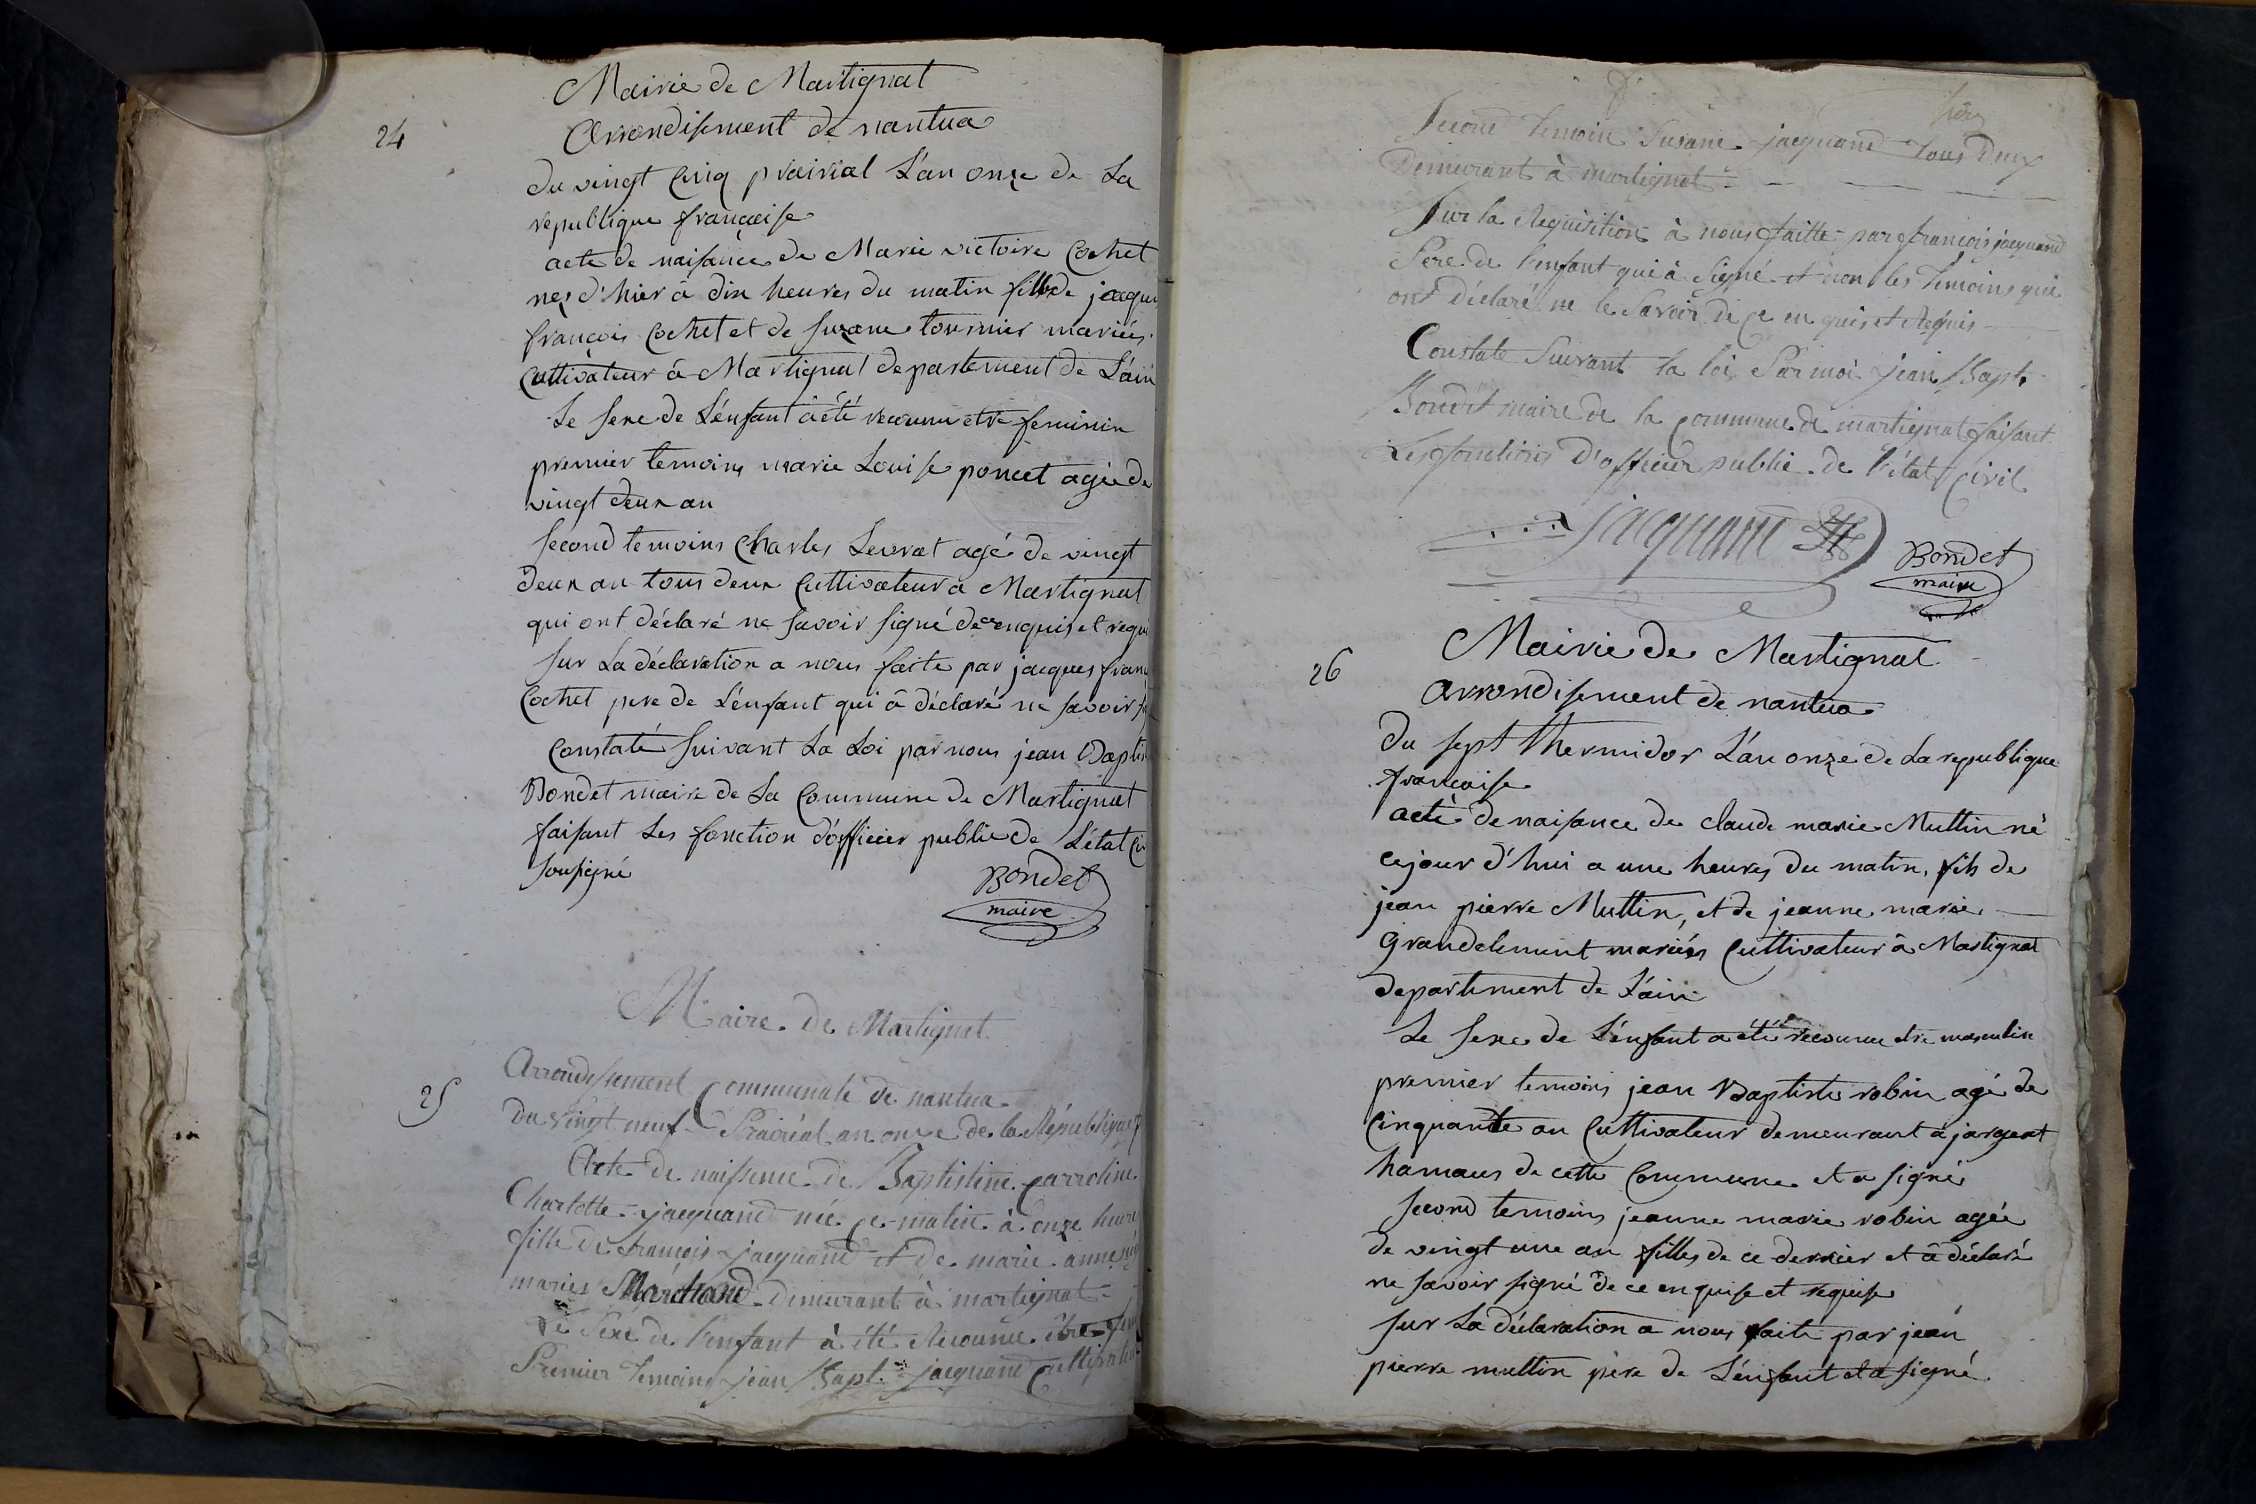 24
Mairie de Martignat
Arrondisement de nantua
du vingt cinq prairial L'an onze de La
republique française
acte de naisance de Marie victoire Cochet
neé d'hier à dix heures du matin fille de jacque
françois Cochet et de suzane tournier mariés
Cultivateur à Martignat departement de L'ain
Le sexe de L'enfant à été reconnu etre feminin
premier temoins marie Louise poncet agée de
vingt deux an
second temoins Charles Levrat agé de vingt
deux an tous deux Cultivateur a Martignat
qui ont déclaré ne savoir signé de ce enquis et requi
sur La déclaration a nous faite par jacques fran
Cochet pere de L'enfant qui à déclaré ne savoir
Constaté suivant La Loi par nous jean Baptis
Bondet maire de La Commune de Martignat
faisant Les fonction d'officier public de L'état Ci
sousigné
Bondet
maire
Maire de Martignat
25
Arrondissement Communale de nantua
du vingt neuf Prairéal an onze de la République f
Acte de naissence de Baptistine Carroline
Charlotte jacquand née ce matin à onze heure
fille de françois jacquand et de marie anne
mariés Marchand demurant à martignat
Le Sexe de l'enfant à été Reconnue être fem
Premier temoins jean Bapt. jacquand Cultivateur
Second temoin Susane jacquand tous Deux
Demurant à martignat
Sur la Requisition à nous faitte par françois jacquand
Pere de l'enfant qui à signé et non les temoins qui
ont déclaré ne le savoir de ce en quis et Requis
Constate Suivant la loi Par moi jean Bapt.
Bondet maire de la Commune de martignat faisant
Les fonctions d'officier public de l'état Civil
jacquand
Bondet
maire
26
Mairie de Martignat
Arrondisement de nantua
du sept thermidor L'an onze de La republique
française
acte de naisance de claude marie Muttin né
cejour d'hui a une heures du matin, fils de
jean pierre Muttin, et de jeanne marie
Grandclement mariés Cultivateur à Martignat
departement de L'ain
Le sexe de L'enfant a été reconnu etre masculin
premier temoins jean Baptiste robin agé de
Cinquante an Cultivateur demeurant à jargeat
hamaus de cette Commune et a signé
second temoins jeanne marie robin agée
de vingt une an filles de ce dernier et à déclaré
ne savoir signé de ce enquise et requise
sur La déclaration a nous faite par jean
pierre muttin père de L'enfant et a signé